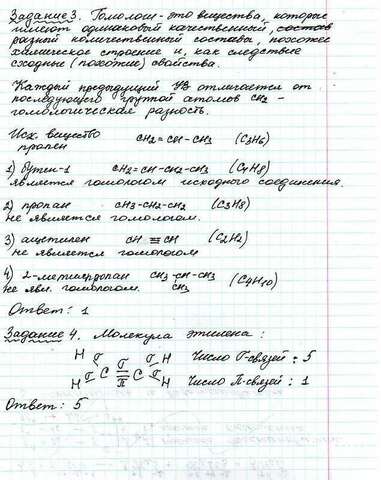 Задание 3. Гомологи - это вещества, которые
имеют одинаковый качественный состав
разный количественный состав, похожее
химическое строение и, как следствие
сходные (похожие) свойства.
Каждый предыдущий УВ отличается от
последующего группой атомов CH2 -
гомологическая разность.
Исх. вещество
пропен CH2 = CH - CH3 (C3H6)
1) бутен-1 CH2 = CH - CH2 - CH3 (C4H8)
является гомологом исходного соединения.
2) пропан CH3 - CH2 - CH2 (C3H8)
не является гомологом.
3) ацетилен CH ≡ CH (C2H2)
не является гомологом
4) 2-метилпропан CH3 - CH - CH3 (C4H10)
не явл. гомологом. CH3
Ответ: 1
Задание 4. Молекула этилена:
H σ σ σ H
C C Число σ-связей: 5
H σ π σ H Число π-связей: 1
Ответ: 5